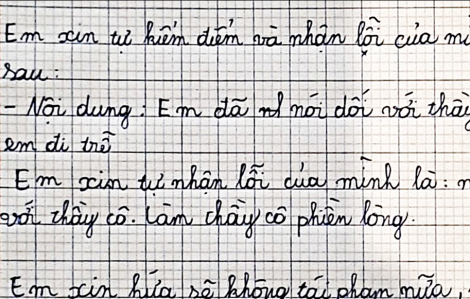 Em xin tự kiểm điểm và nhận lỗi của
sau:
- Nội dung: Em đã nói dối với thầy
em đi trễ
Em xin tự nhận lỗi của mình là:
với thầy cô. Làm thầy cô phiền lòng.
Em xin hứa sẽ không tái phạm nữa,